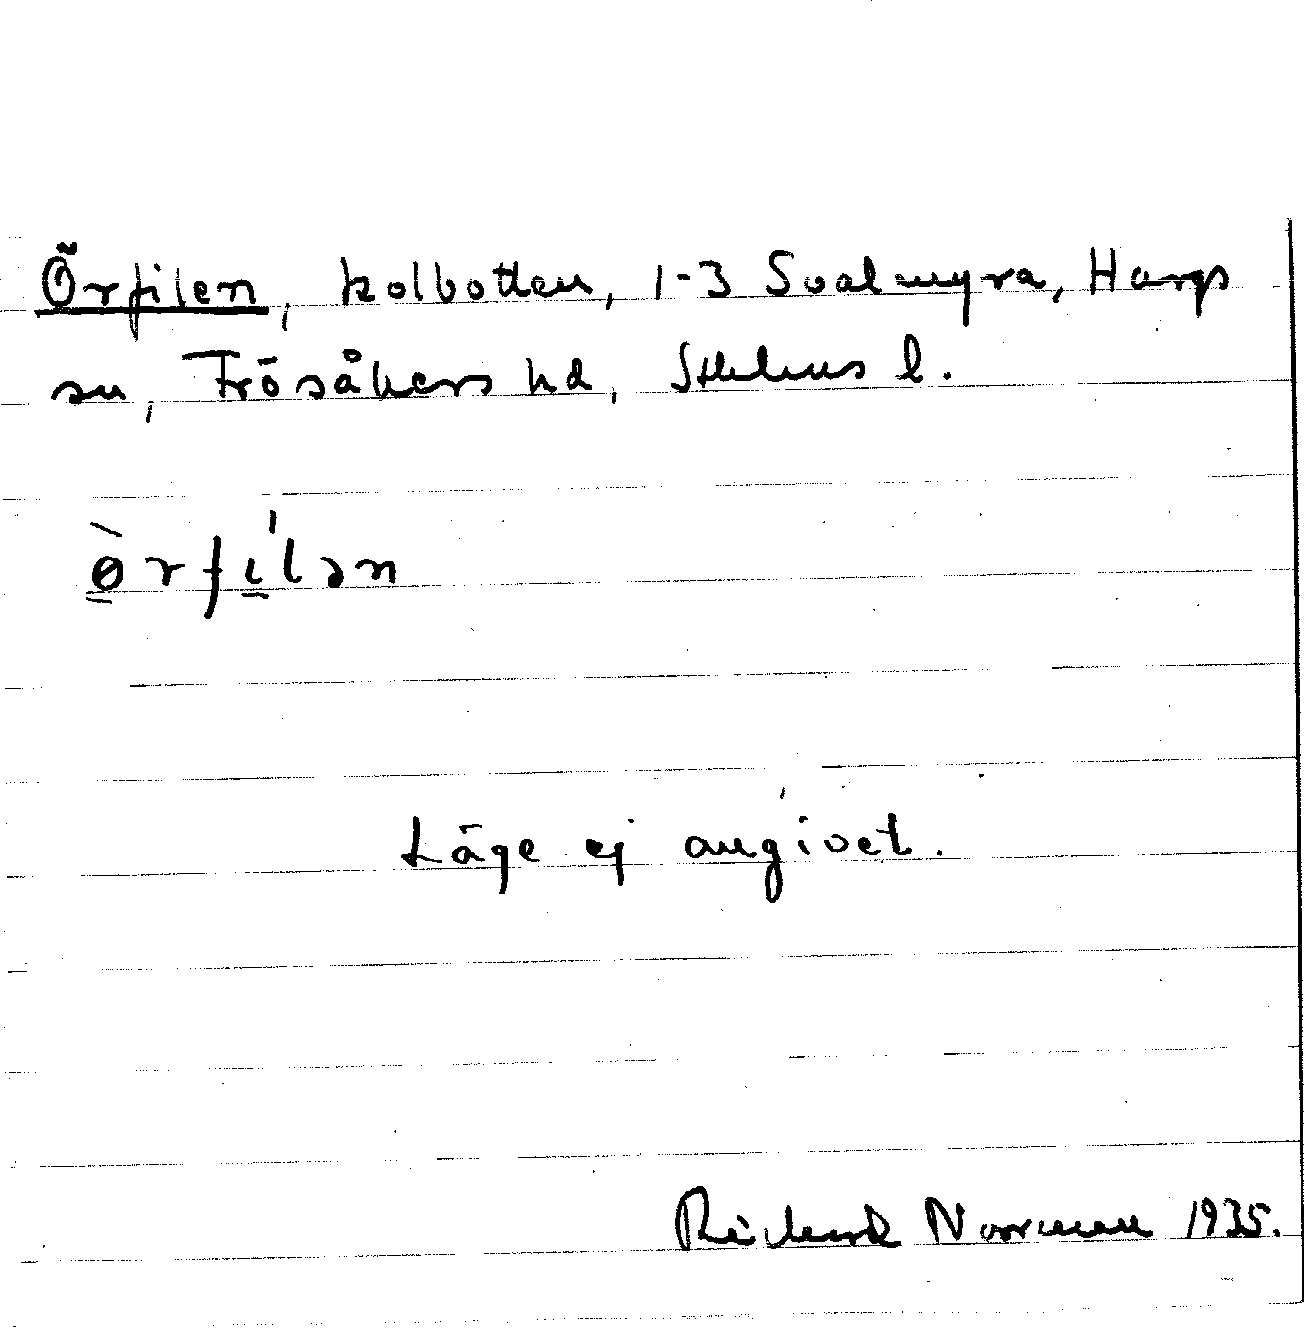 Örfilen, kolbotten, 1-3 Svalmyra, Hargs
sn, Frösåkers hd, Sthlms l.
ø̱̀rfɩ̱́lən
Läge ej angivet.
Richard Norrman 1935.